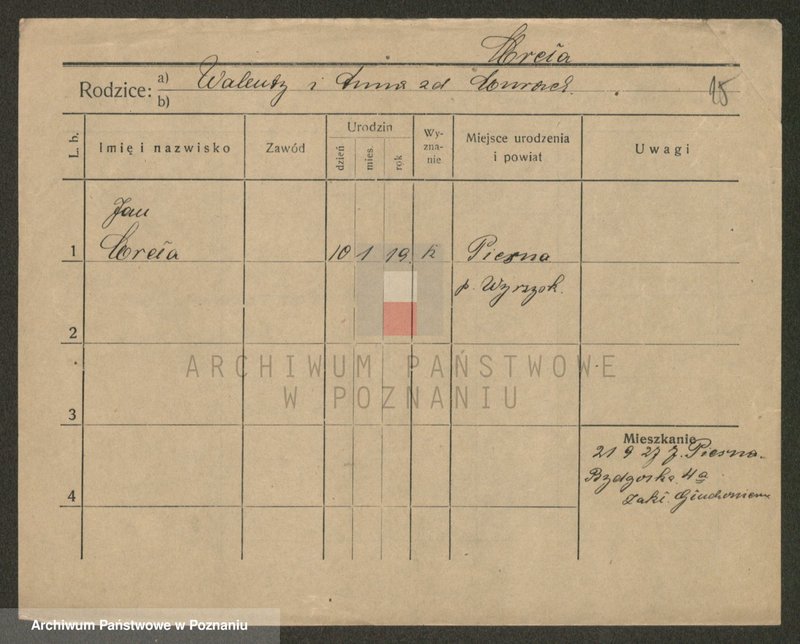 Kreia
Rodzice: a) Walenty i Anna zd
b)
15
L. b. Imię i nazwisko Zawód Urodzin dzień mies. rok Wyznanie Miejsce urodzenia i powiat Uwagi
Jan
1 Kreia 10 1 19 k Piesna
p. Wyrzysk.
2
ARCHIWUM PAŃSTWOWE
W POZNANIU
3
Mieszkanie
21 9 27 z. Piesna.
4 Bydgoska 4a
Zakł.
Archiwum Państwowe w Poznaniu